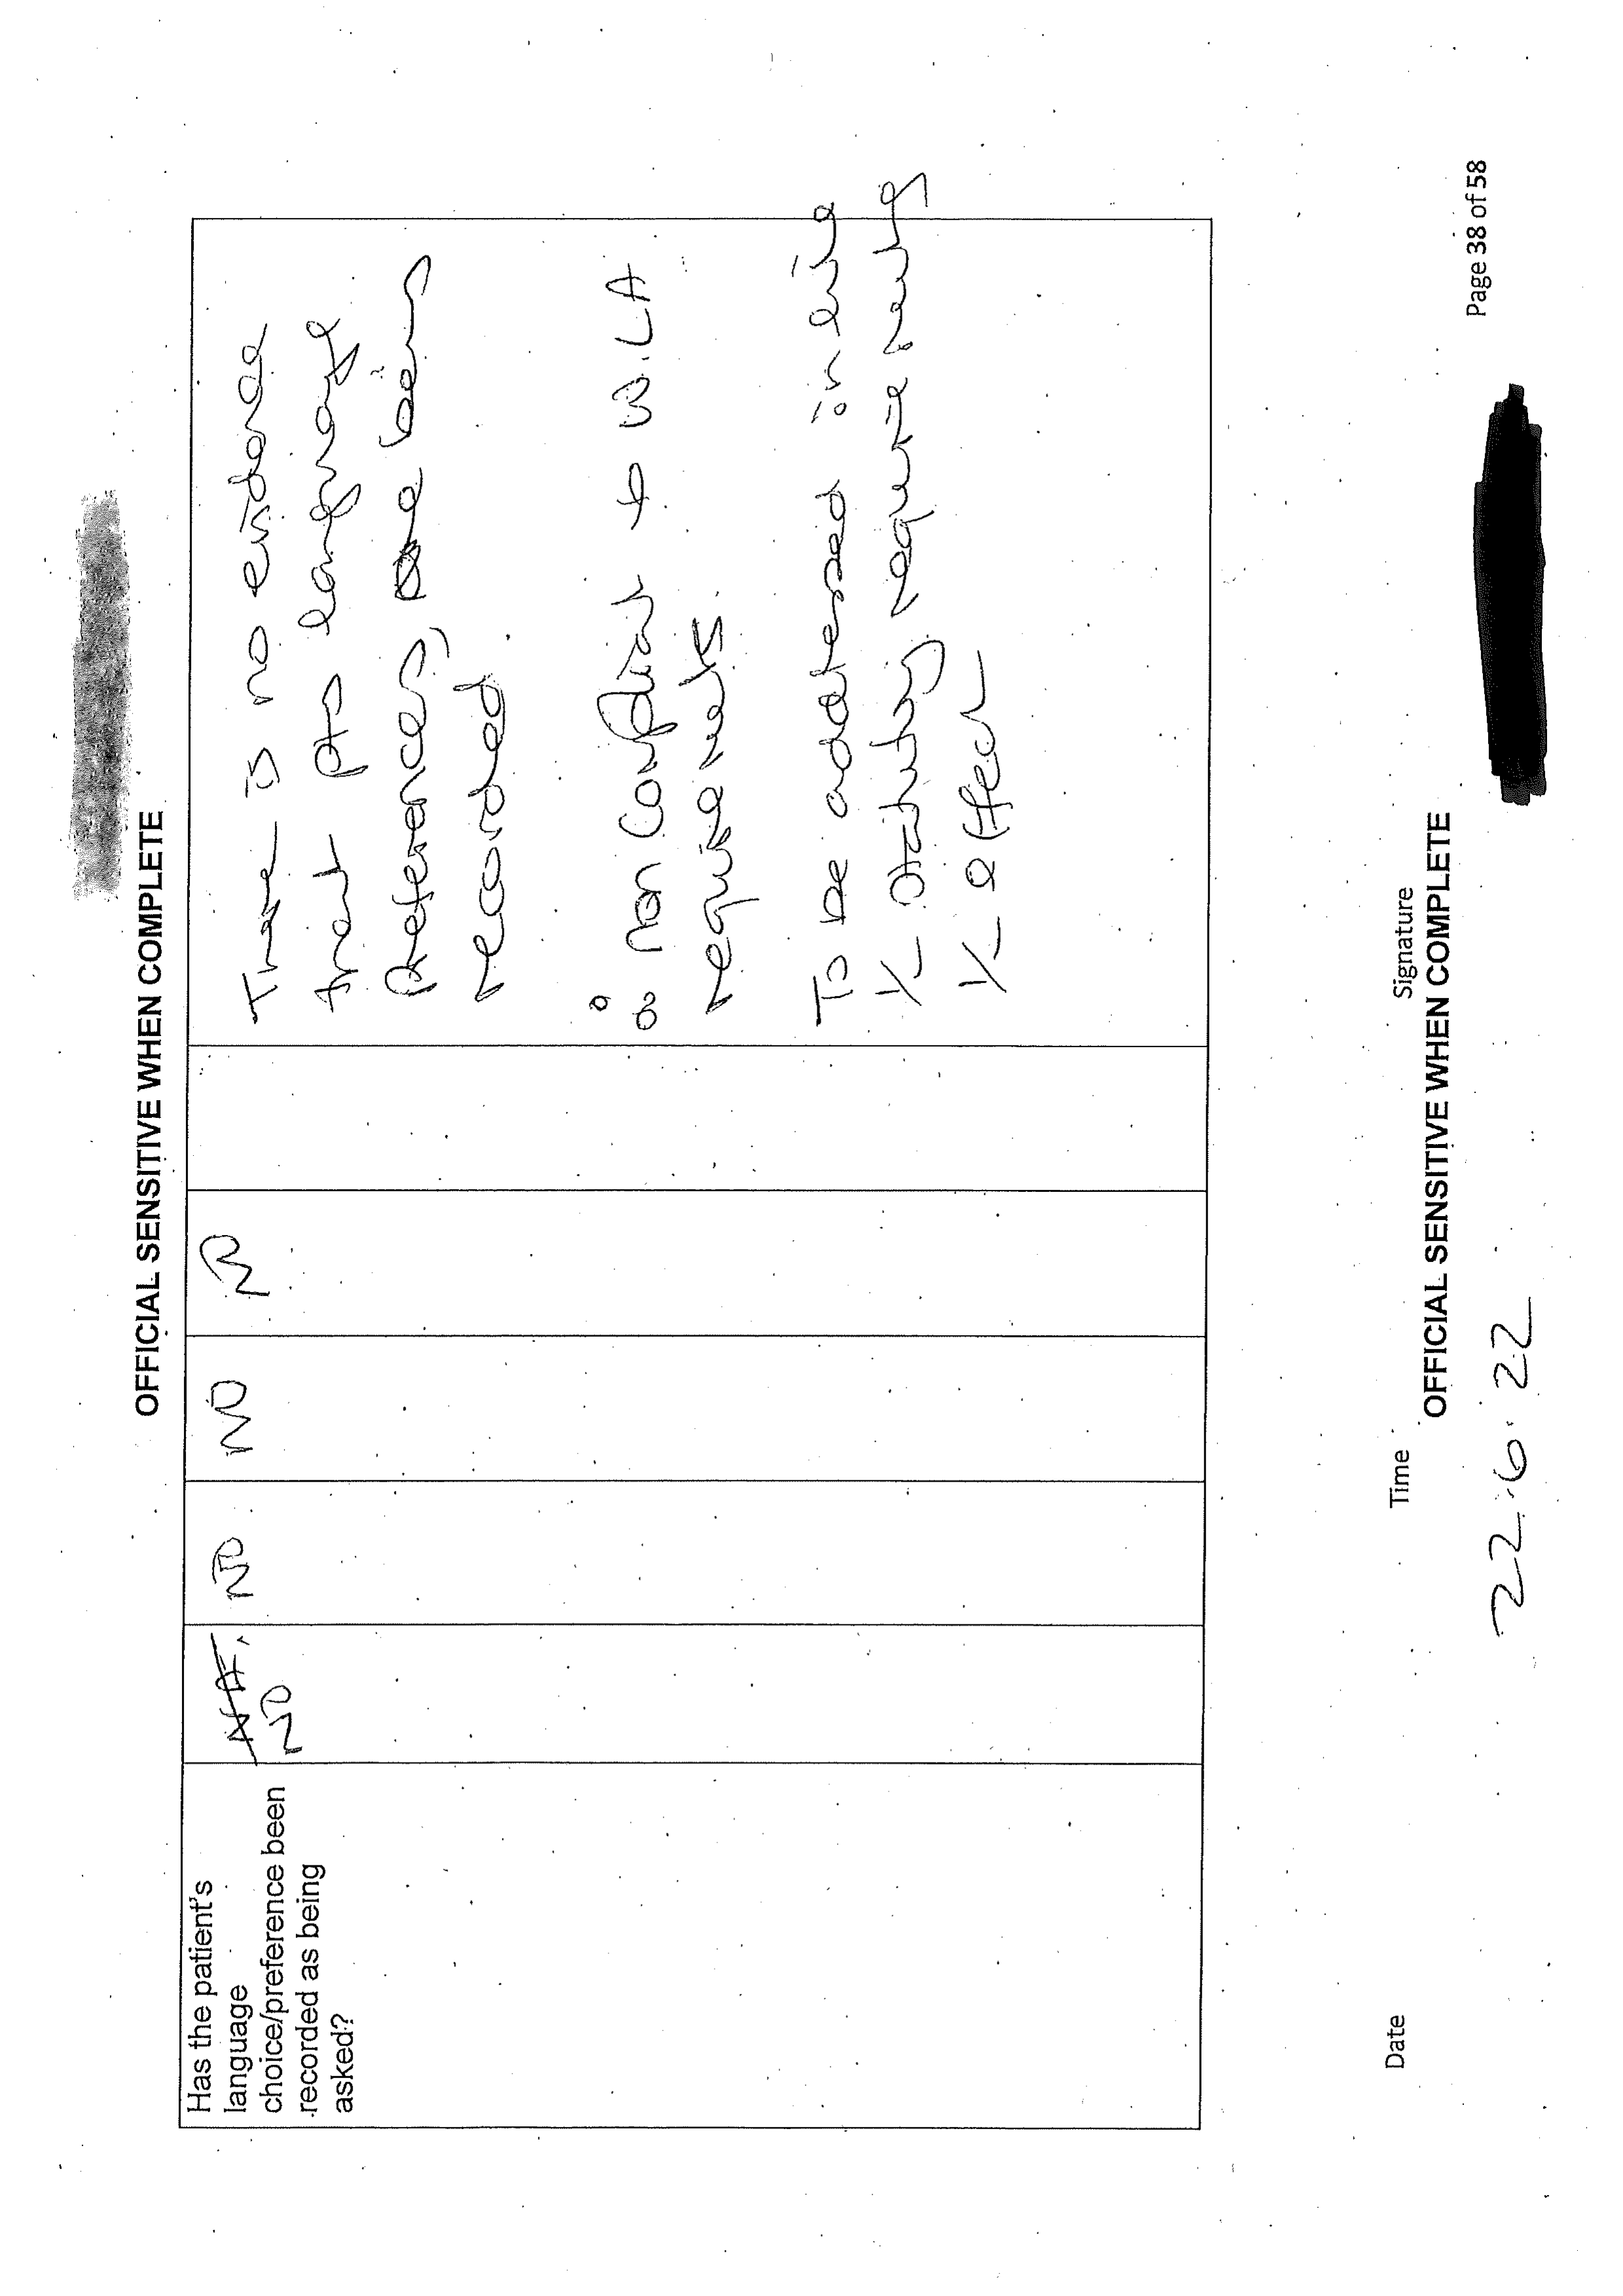 OFFICIAL SENSITIVE WHEN COMPLETE
Has the patient's
language
choice/preference been
recorded as being
asked?
NO
NO
NO
NO
There is no evidence
that pts language
preferences, are being
recorded.
∴ non Compliant to W.LA
requirements.
To be addressed in line
statutory requirements
effect
Date
Time
Signature
OFFICIAL SENSITIVE WHEN COMPLETE
22.6.22
Page 38 of 58